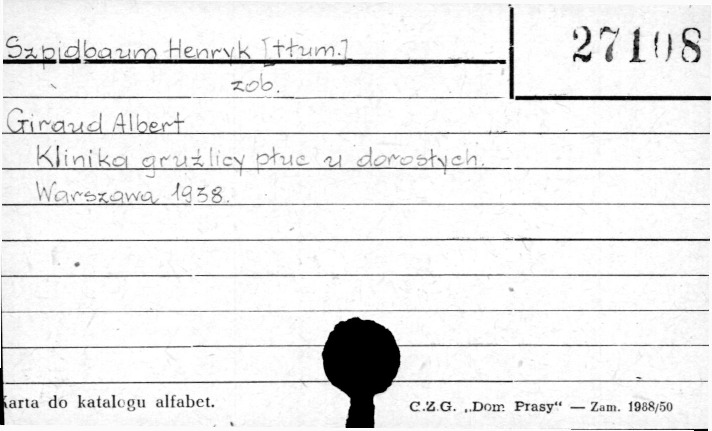 Szpidbaum Henryk [tłum.]
27108
zob.
Giraud Albert
Klinika gruźlicy płuc u dorosłych.
Warszawa 1938.
Karta do katalogu alfabet.
C.Z.G. „Dom Prasy“ — Zam. 1938/50